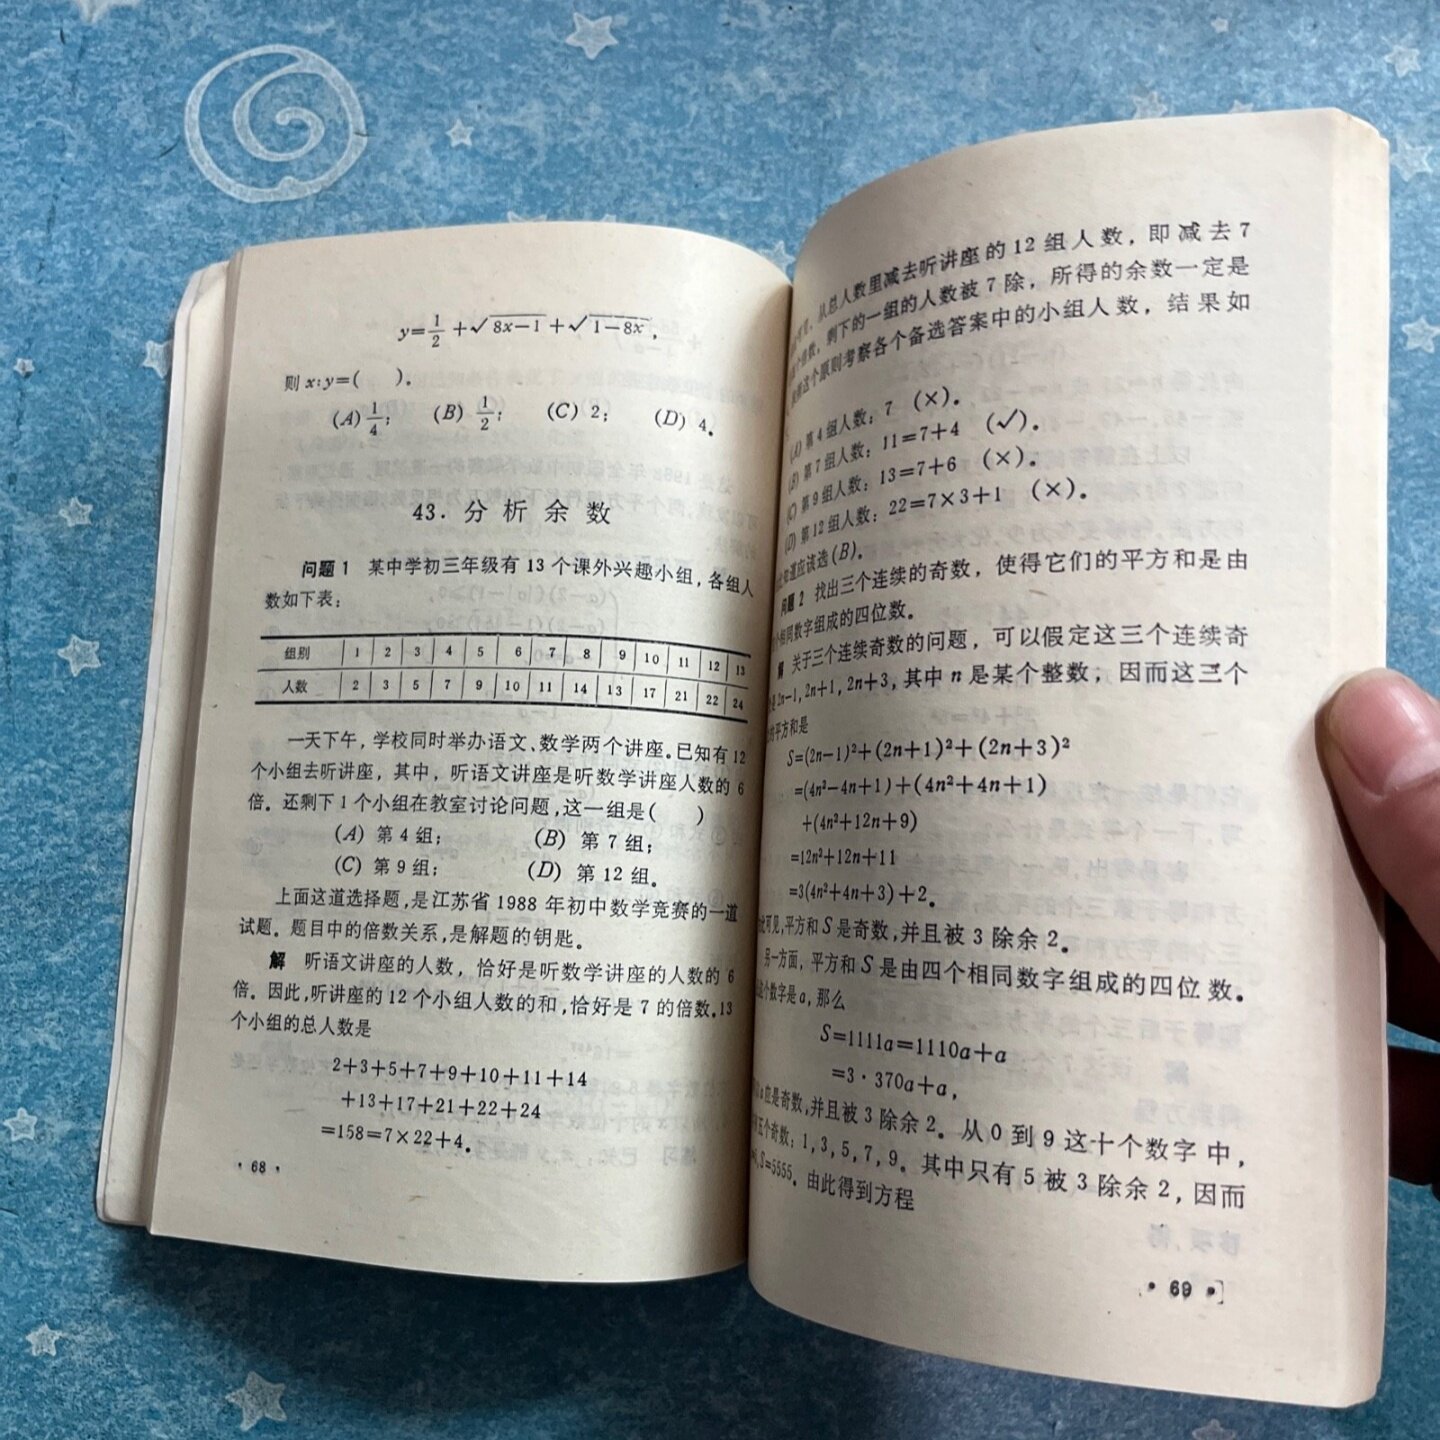 y=1/2+√8x−1+√1−8x,
则 x:y=(  )。
(A) 1/4; (B) 1/2; (C) 2; (D) 4。
43. 分析余数
问题 1 某中学初三年级有 13 个课外兴趣小组，各组人
数如下表：
组别 1 2 3 4 5 6 7 8 9 10 11 12 13
人数 2 3 5 7 9 10 11 14 13 17 21 22 24
一天下午，学校同时举办语文、数学两个讲座。已知有 12
个小组去听讲座，其中，听语文讲座是听数学讲座人数的 6
倍。还剩下 1 个小组在教室讨论问题，这一组是(  )
(A) 第 4 组； (B) 第 7 组；
(C) 第 9 组； (D) 第 12 组。
上面这道选择题，是江苏省 1988 年初中数学竞赛的一道
试题。题目中的倍数关系，是解题的钥匙。
解 听语文讲座的人数，恰好是听数学讲座的人数的 6
倍。因此，听讲座的 12 个小组人数的和，恰好是 7 的倍数。13
个小组的总人数是
2+3+5+7+9+10+11+14
+13+17+21+22+24
=158=7×22+4。
·68·
从总人数里减去听讲座的 12 组人数，即减去 7
倍数，剩下的一组的人数被 7 除，所得的余数一定是
这个原则考察各个备选答案中的小组人数，结果如
(A) 第 4 组人数：7 (×)。
(B) 第 7 组人数：11=7+4 (√)。
(C) 第 9 组人数：13=7+6 (×)。
(D) 第 12 组人数：22=7×3+1 (×)。
知道应该选(B)。
问题 2 找出三个连续的奇数，使得它们的平方和是由
相同数字组成的四位数。
解 关于三个连续奇数的问题，可以假定这三个连续奇
是 2n−1, 2n+1, 2n+3, 其中 n 是某个整数；因而这三个
的平方和是
S=(2n−1)²+(2n+1)²+(2n+3)²
=(4n²−4n+1)+(4n²+4n+1)
+(4n²+12n+9)
=12n²+12n+11
=3(4n²+4n+3)+2。
此可见，平方和 S 是奇数，并且被 3 除余 2。
另一方面，平方和 S 是由四个相同数字组成的四位数。
这个数字是 a，那么
S=1111a=1110a+a
=3·370a+a,
a 应是奇数，并且被 3 除余 2。从 0 到 9 这十个数字中，
五个奇数：1, 3, 5, 7, 9。其中只有 5 被 3 除余 2，因而
S=5555。由此得到方程
·69·